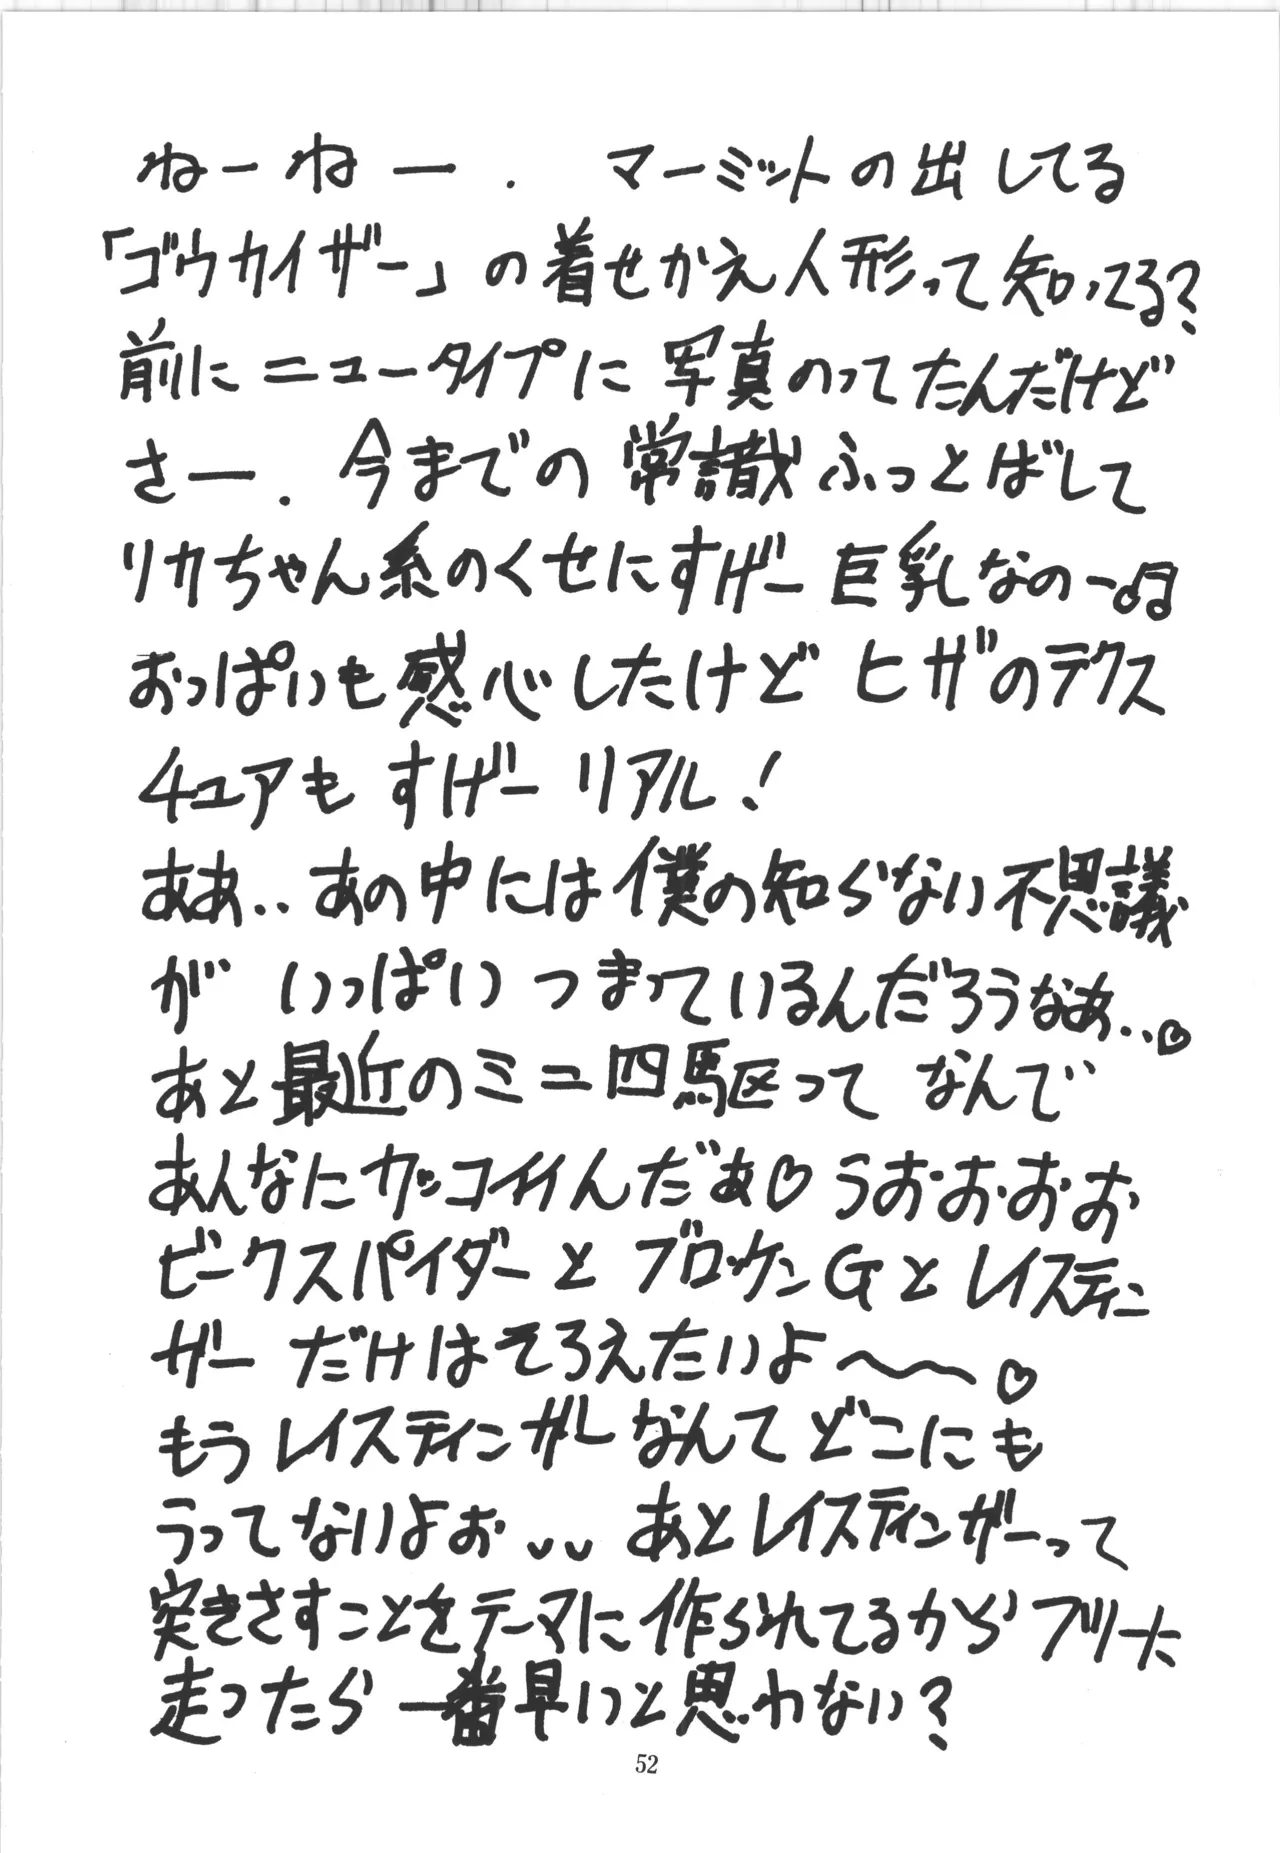 ねーねー. マーミットの出してる
「ゴウカイザー」の着せかえ人形って知ってる?
前にニュータイプに写真のってたんだけど
さー. 今までの常識ふっとばして
リカちゃん系のくせにすげー巨乳なのー♫
おっぱいも感心したけどヒザのテクス
チュアもすげーリアル!
ああ..あの中には僕の知らない不思議
がいっぱいつまっているんだろうなあ..♡
あと最近のミニ四駆ってなんで
あんなにカッコイイんだぁ♡うおおおお
ビークスパイダーとブロッケンGとレイスティン
ガーだけはそろえたいよ〜〜♡
もうレイスティンガーなんてどこにも
うってないよぉ、、あとレイスティンガーって
突きさすことをテーマに作られてるからフリーで
走ったら一番早いと思わない?
52